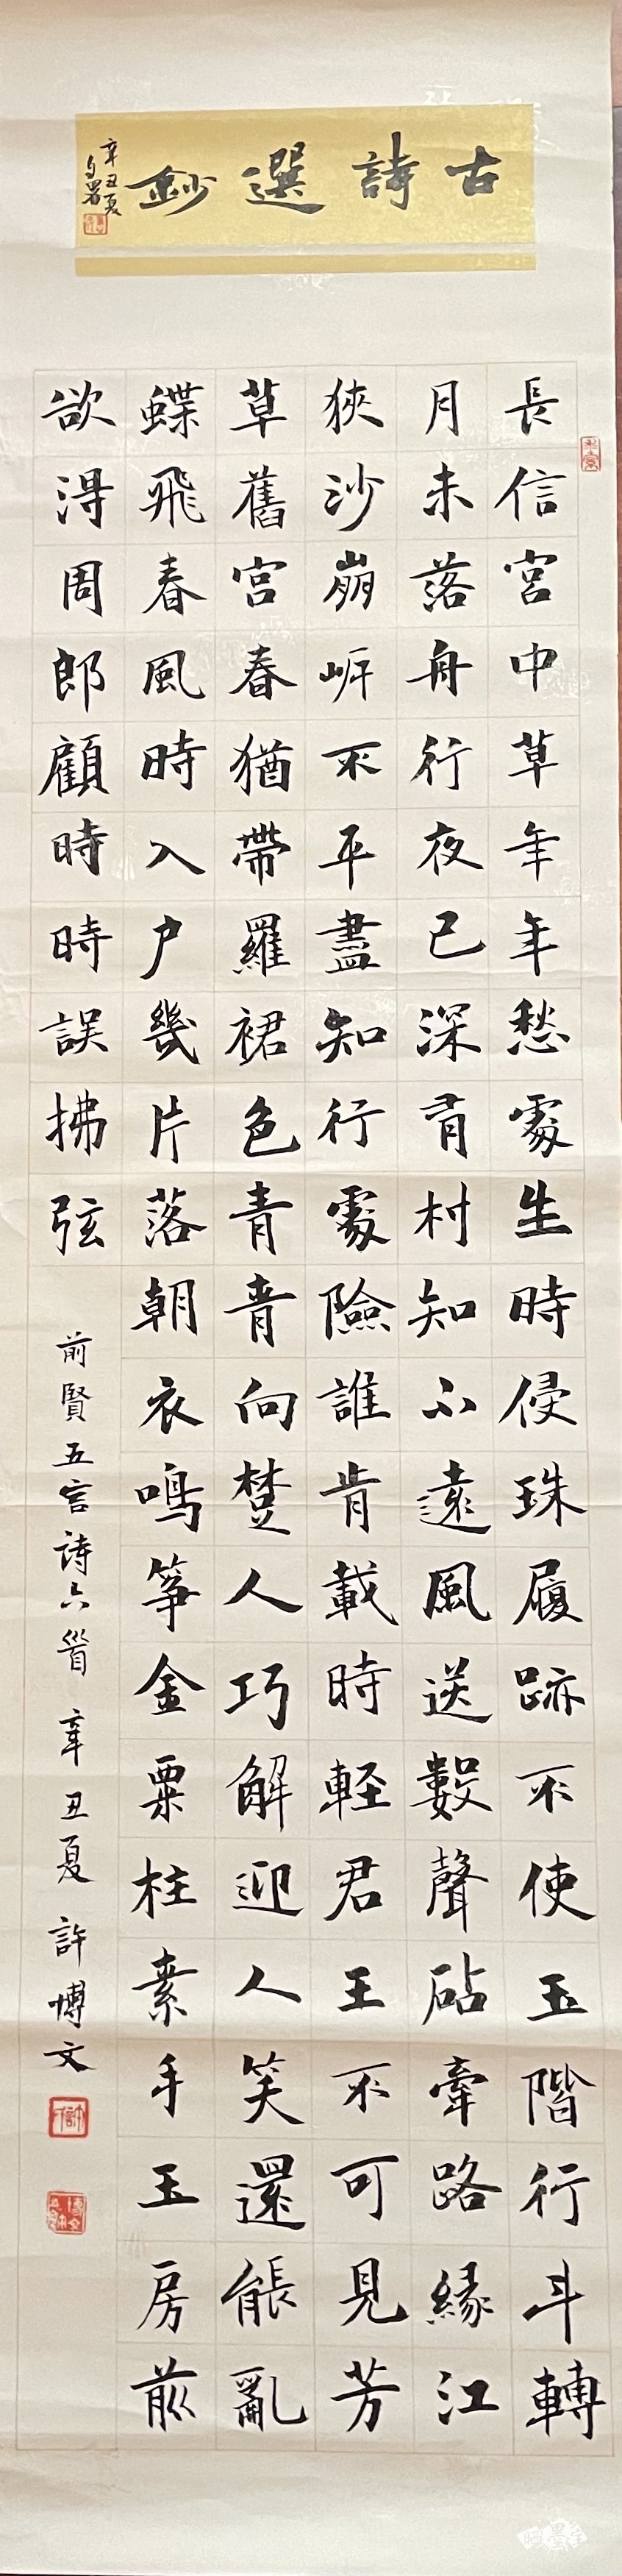 古詩選鈔
辛丑夏
自署
長信宮中草年年愁處生時侵珠履跡不使玉階行斗轉
月未落舟行夜已深有村知不遠風送數聲砧牽路緣江
狹沙崩岸不平盡知行處險誰肯載時輕君王不可見芳
草舊宮春猶帶羅裙色青青向楚人巧解迎人笑還能亂
蝶飛春風時入户幾片落朝衣鳴筝金粟柱素手玉房前
欲得周郎顧時時誤拂弦
前賢五言詩六首 辛丑夏 許博文